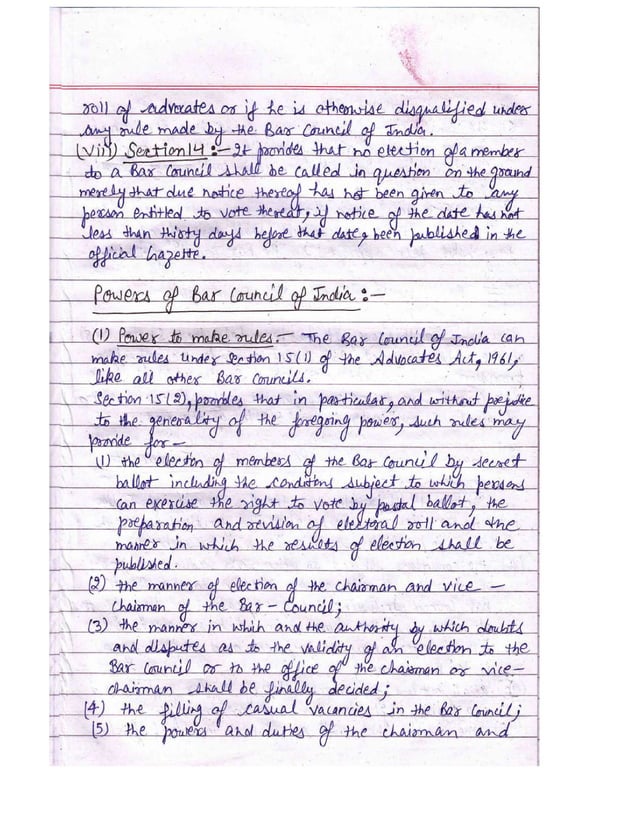 roll of advocates or if he is otherwise disqualified under
any rule made by the Bar Council of India.
(viii) Section 14 :- It provides that no election of a member
to a Bar Council shall be called in question on the ground
merely that due notice thereof has not been given to any
person entitled to vote thereat, if notice of the date has not
less than thirty days before that date, been published in the
official Gazette.
Powers of Bar Council of India :-
(1) Power to make rules :- The Bar Council of India can
make rules under Section 15(1) of the Advocates Act, 1961,
like all other Bar Councils.
Section 15(2), provides that in particular, and without prejudice
to the generality of the foregoing power, such rules may
provide for -
(1) the election of members of the Bar Council by secret
ballot including the conditions subject to which persons
can exercise the right to vote by postal ballot, the
preparation and revision of electoral roll and the
manner in which the results of election shall be
published.
(2) the manner of election of the chairman and vice -
Chairman of the Bar - Council;
(3) the manner in which and the authority by which doubts
and disputes as to the validity of an election to the
Bar Council or to the office of the chairman or vice-
chairman shall be finally decided;
(4) the filling of casual vacancies in the Bar Council;
(5) the powers and duties of the chairman and